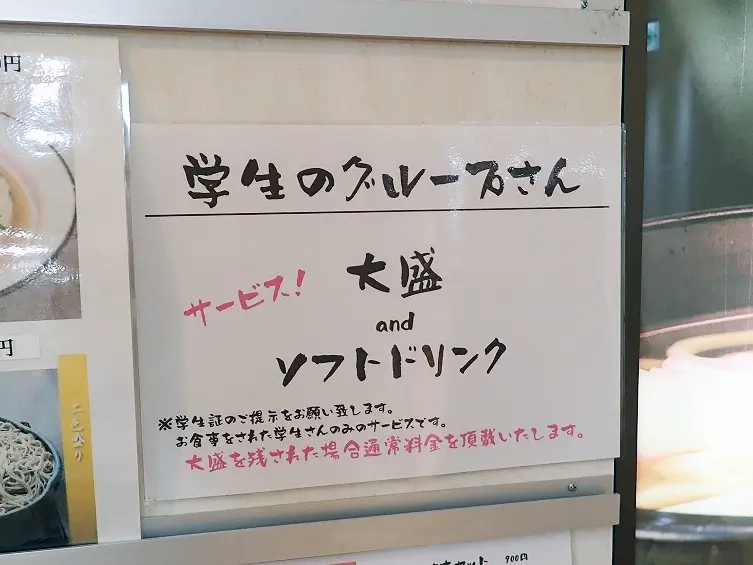 円
学生のグループさん
サービス!
大盛
and
ソフトドリンク
※学生証のご提示をお願い致します。
お食事をされた学生さんのみのサービスです。
大盛を残された場合通常料金を頂戴いたします。
円
セット 900円